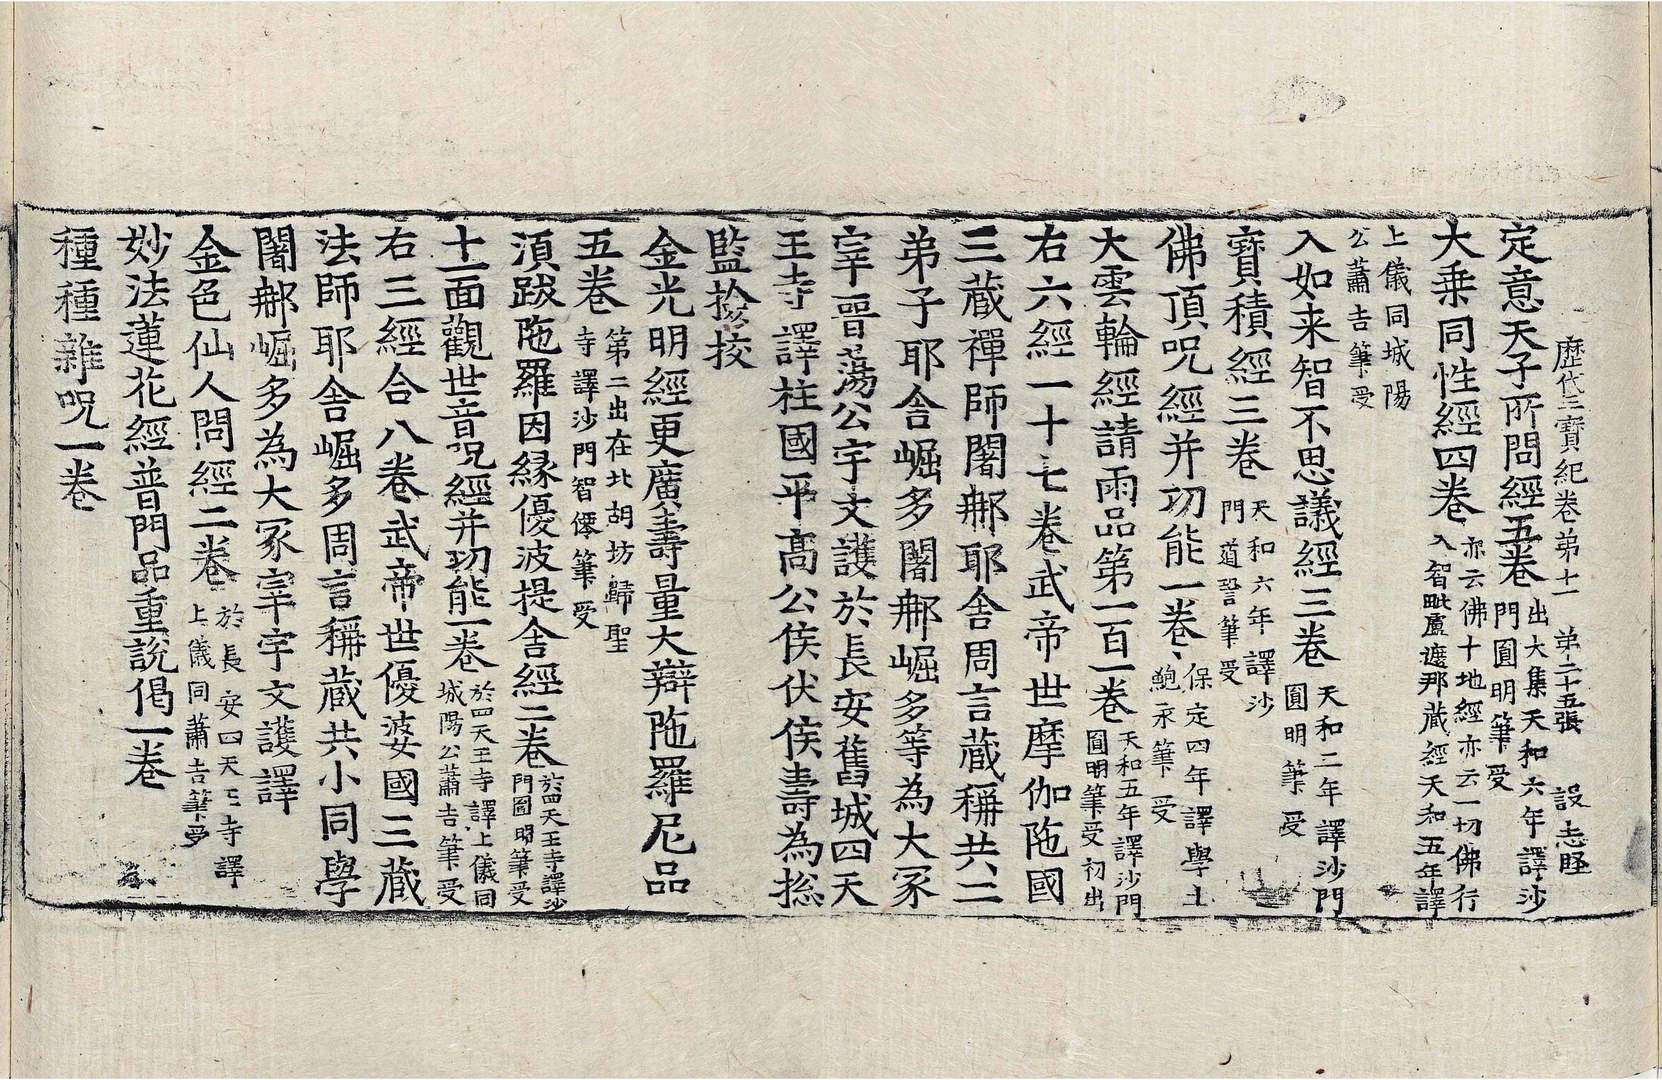 歷代三寶紀卷第十一 第二十五張 設志眰
定意天子所問經五卷 出大集天和六年譯沙門圓明筆受
大乘同性經四卷 亦云佛十地經亦云一切佛行入智毗盧遮那藏經天和五年譯
上儀同城陽公蕭吉筆受
入如来智不思議經三卷 天和三年譯沙門圓明筆受
寶積經三卷 天和六年譯沙門道䛒筆受
佛頂呪經并功能一卷 保定四年譯學士鮑永筆受
大雲輪經請雨品第一百一卷 天和五年譯沙門圓明筆受初出
右六經一十七卷武帝世摩伽陁國
三藏禪師闍那耶舍周言藏稱共二
弟子耶舍崛多闍那崛多等為大冢
宰晉蕩公宇文護於長安舊城四天
王寺譯柱國平髙公侯伏侯壽為捴
監撿挍
金光明經更廣壽量大辯陁羅尼品
五卷 第二出在北胡坊歸聖寺譯沙門智僊筆受
湏跋陁羅因縁優波提舍經二卷 於四天王寺譯沙門圓明筆受
十一面觀世音呪經并功能一卷 於四天王寺譯上儀同城陽公蕭吉筆受
右三經合八卷武帝世優婆國三藏
法師耶舍崛多周言稱藏共小同學
闍那崛多為大冢宰宇文護譯
金色仙人問經二卷 於長安四天王寺譯上儀同蕭吉筆受
妙法蓮花經普門品重說偈一卷
種種雜呪一卷